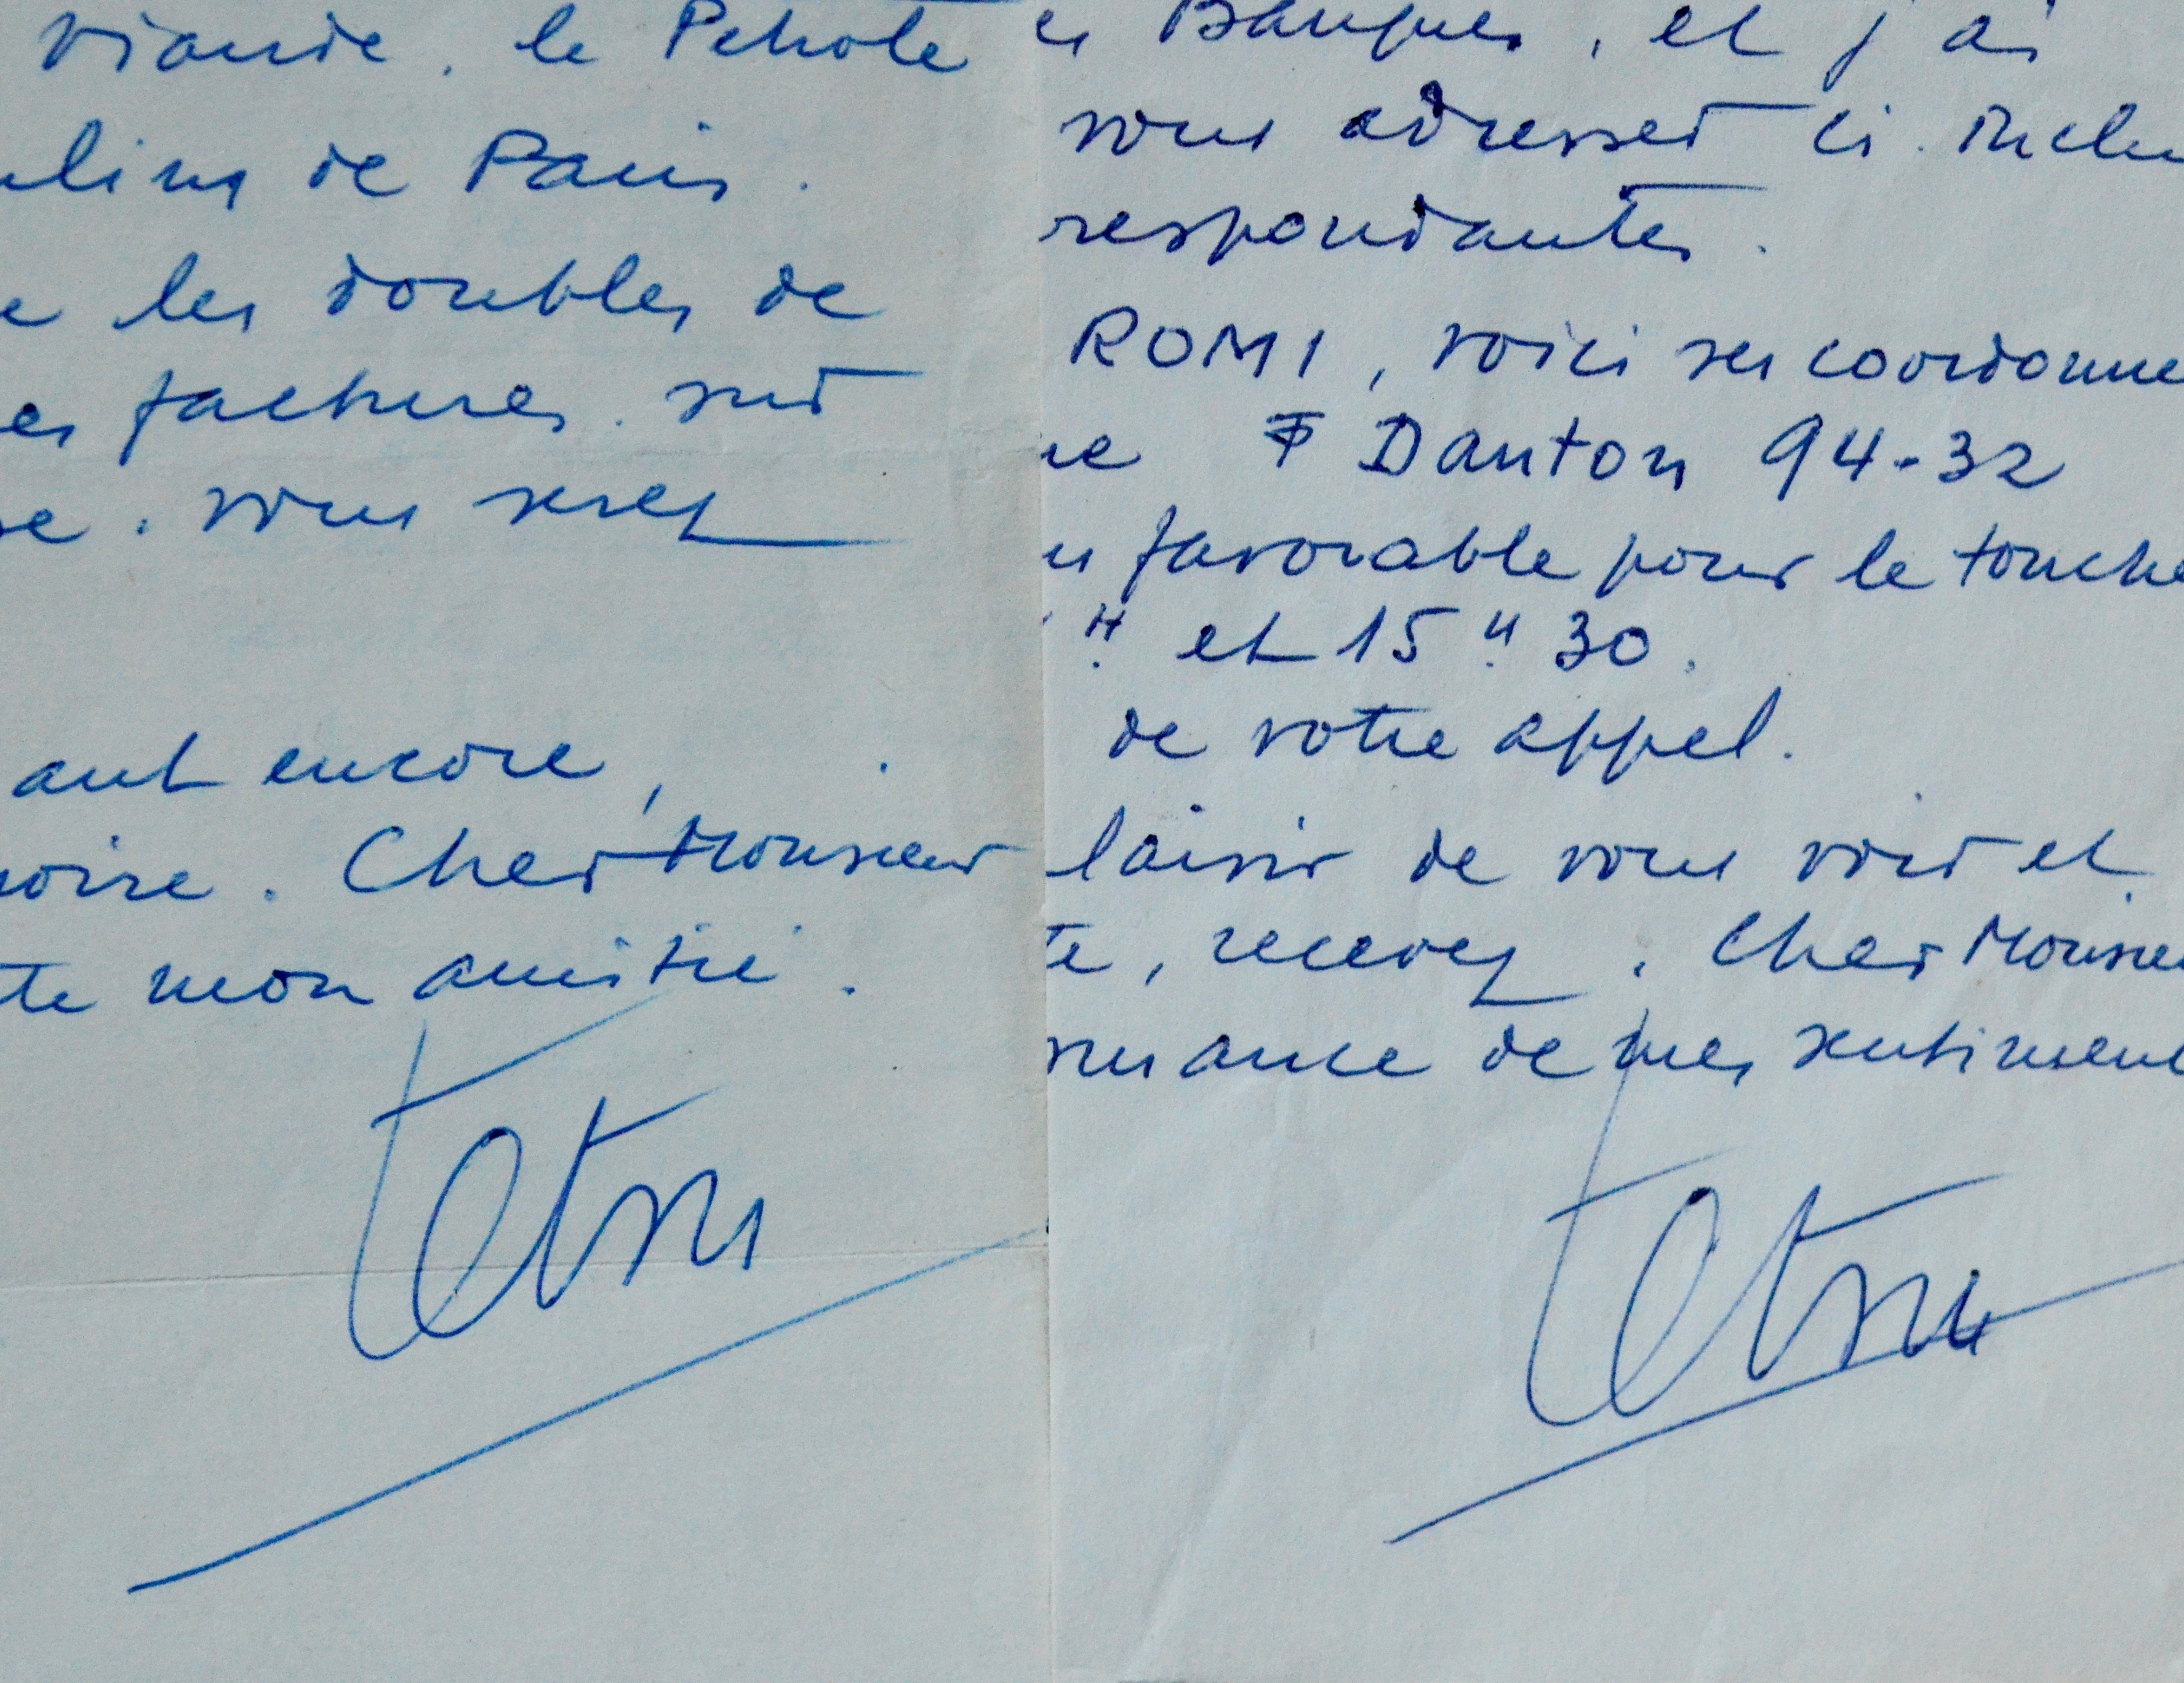 viande, le Pétrole
ulins de Paris.
e les doubles de
es factures, sur
se, vous serez
ant encore,
noire, Cher Monsieur
te mon amitié.
Tetsu
es Banques, et j'ai
vous adresser ci-inclu
respondantes.
ROMI, voici ses coordonné
ue Danton 94-32
us favorable pour le touche
H. et 15 H. 30.
de votre appel.
laisir de vous voir et
te, recevez, Cher Monsieu
surance de mes sentiment
Tetsu